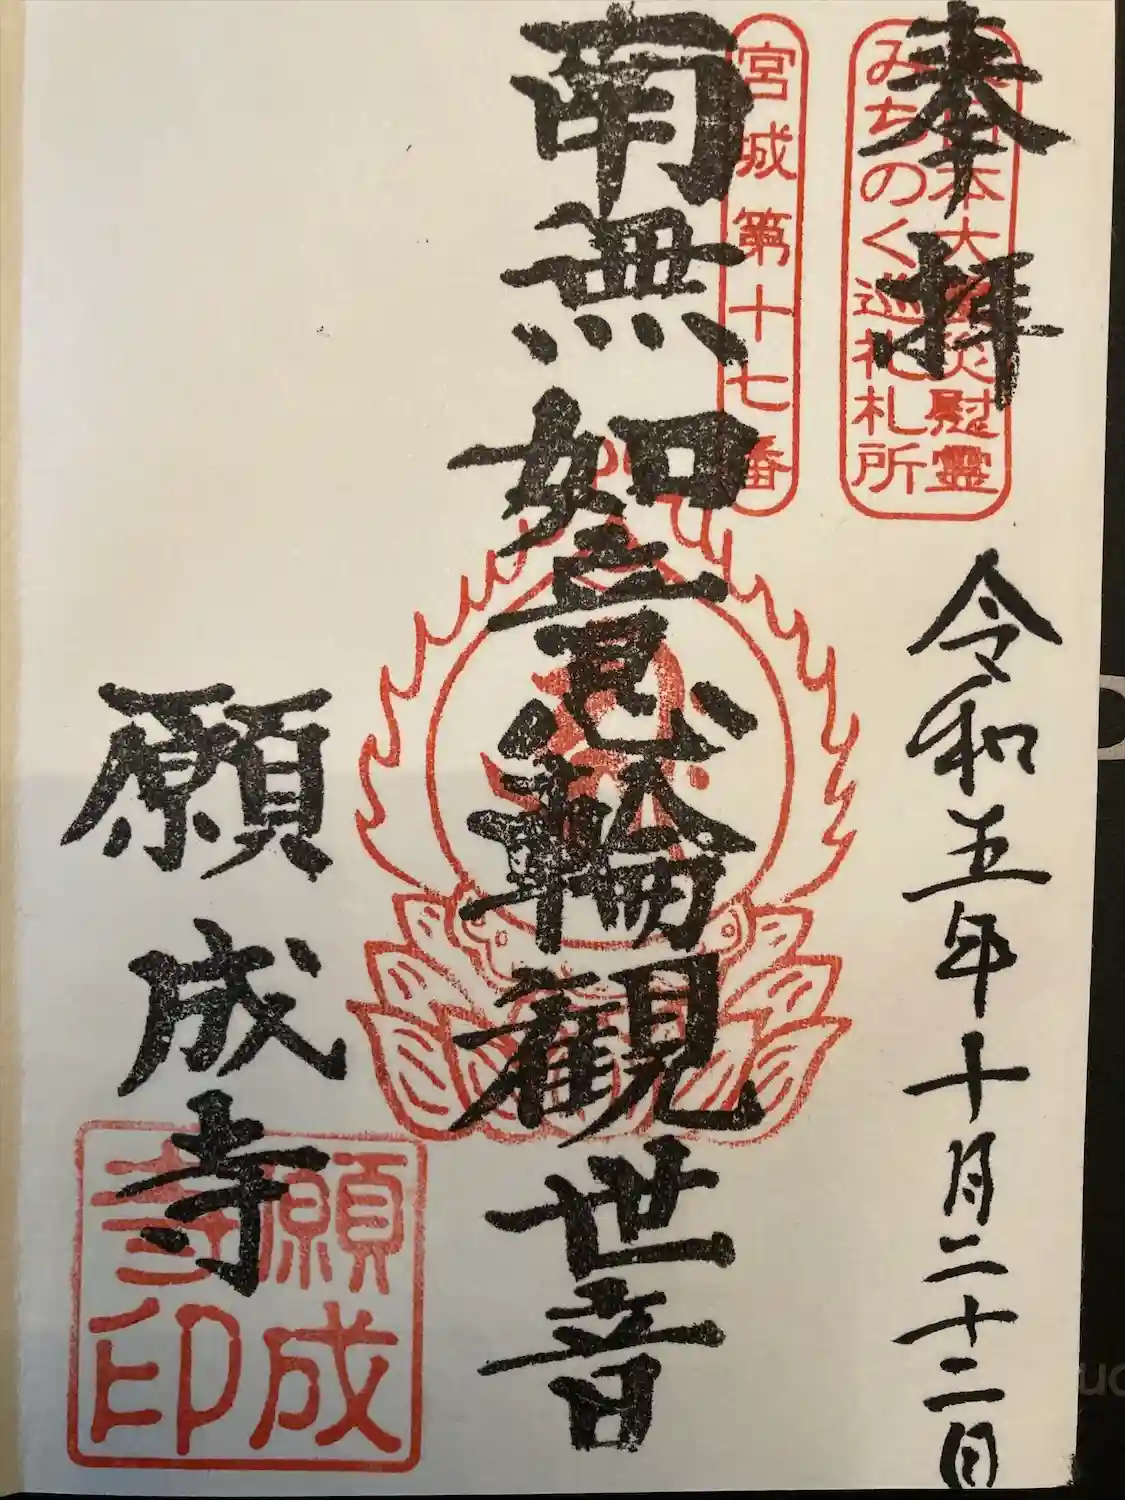 奉拝
東日本大震災慰霊
みちのく巡礼札所
令和五年十月二十二日
宮城第十七番
南無如意輪観世音
願成寺
願成寺印